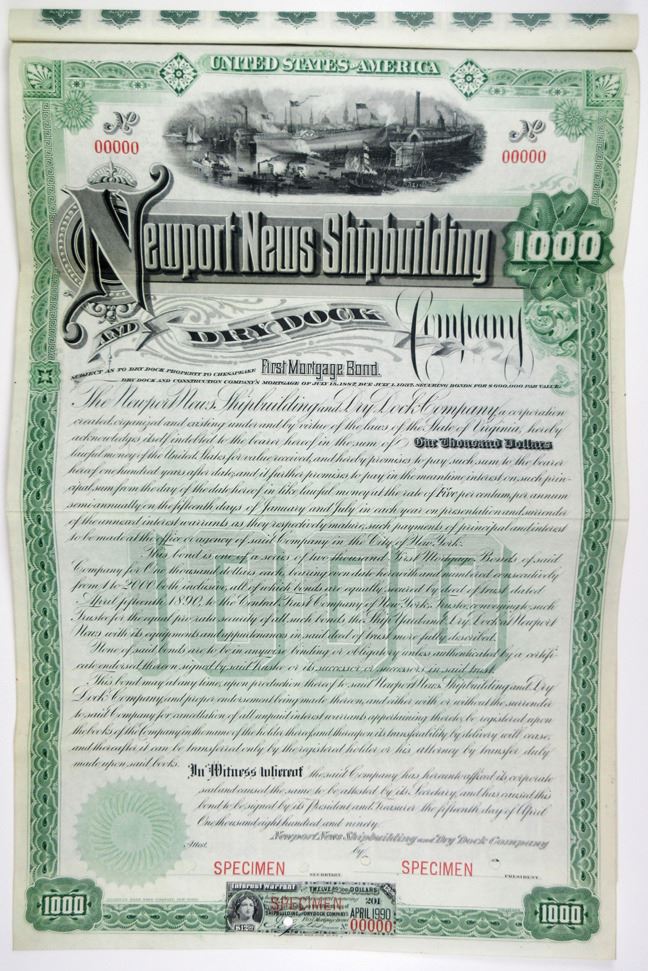 UNITED STATES OF AMERICA
No
00000
No
00000
Newport News Shipbuilding
1000
AND DRY DOCK Company
First Mortgage Bond.
SUBJECT AS TO DRY DOCK PROPERTY TO CHESAPEAKE
DRY DOCK AND CONSTRUCTION COMPANY'S MORTGAGE OF JULY 15, 1887, DUE JULY 1, 1937, SECURING BONDS FOR $600,000 PAR VALUE.
The Newport News Shipbuilding and Dry Dock Company, a corporation
created, organized and existing under and by virtue of the laws of the State of Virginia, hereby
acknowledges itself indebted to the bearer hereof in the sum of One Thousand Dollars
lawful money of the United States for value received, and hereby promises to pay such sum to the bearer
hereof one hundred years after date, and it further promises to pay in the meantime interest on such prin-
cipal sum from the day of the date hereof in like lawful money at the rate of Five per centum per annum
semi-annually on the fifteenth days of January and July in each year on presentation and surrender
of the annexed interest warrants as they respectively mature, such payments of principal and interest
to be made at the office or agency of said Company in the City of New York.
This bond is one of a series of two thousand First Mortgage Bonds of said
Company for One thousand dollars each, bearing even date herewith and numbered consecutively
from 1 to 2000 both inclusive, all of which bonds are equally secured by deed of trust dated
April fifteenth 1890, to the Central Trust Company of New York, Trustee, conveying to such
Trustee for the equal pro rata security of all such bonds the Ship Yard and Dry Dock at Newport
News with its equipments and appurtenances in said deed of trust more fully described.
None of said bonds are to be in any wise binding or obligatory unless authenticated by a certifi-
cate endorsed thereon signed by said trustee or its successor or successors in said trust.
This bond may at any time, upon production thereof to said Newport News Shipbuilding and Dry
Dock Company, and proper endorsement being made thereon, and either with or without the surrender
to said Company for cancellation of all unpaid interest warrants appertaining thereto, be registered upon
the books of the Company in the name of the holder thereof and thereupon its transferability by delivery will cease,
and thereafter it can be transferred only by the registered holder or his attorney by transfer duly
made upon said books.
In Witness whereof the said Company has hereunto affixed its corporate
seal and caused the same to be attested by its Secretary, and has caused this
bond to be signed by its President and Treasurer the fifteenth day of April
One thousand eight hundred and ninety.
Newport News Shipbuilding and Dry Dock Company
Attest
by
SPECIMEN
SECRETARY.
SPECIMEN
PRESIDENT.
1000
Interest Warrant
TWELVE DOLLARS
201
SPECIMEN
SHIPBUILDING AND DRY DOCK COMPANY
APRIL 1990
No 00000
1000